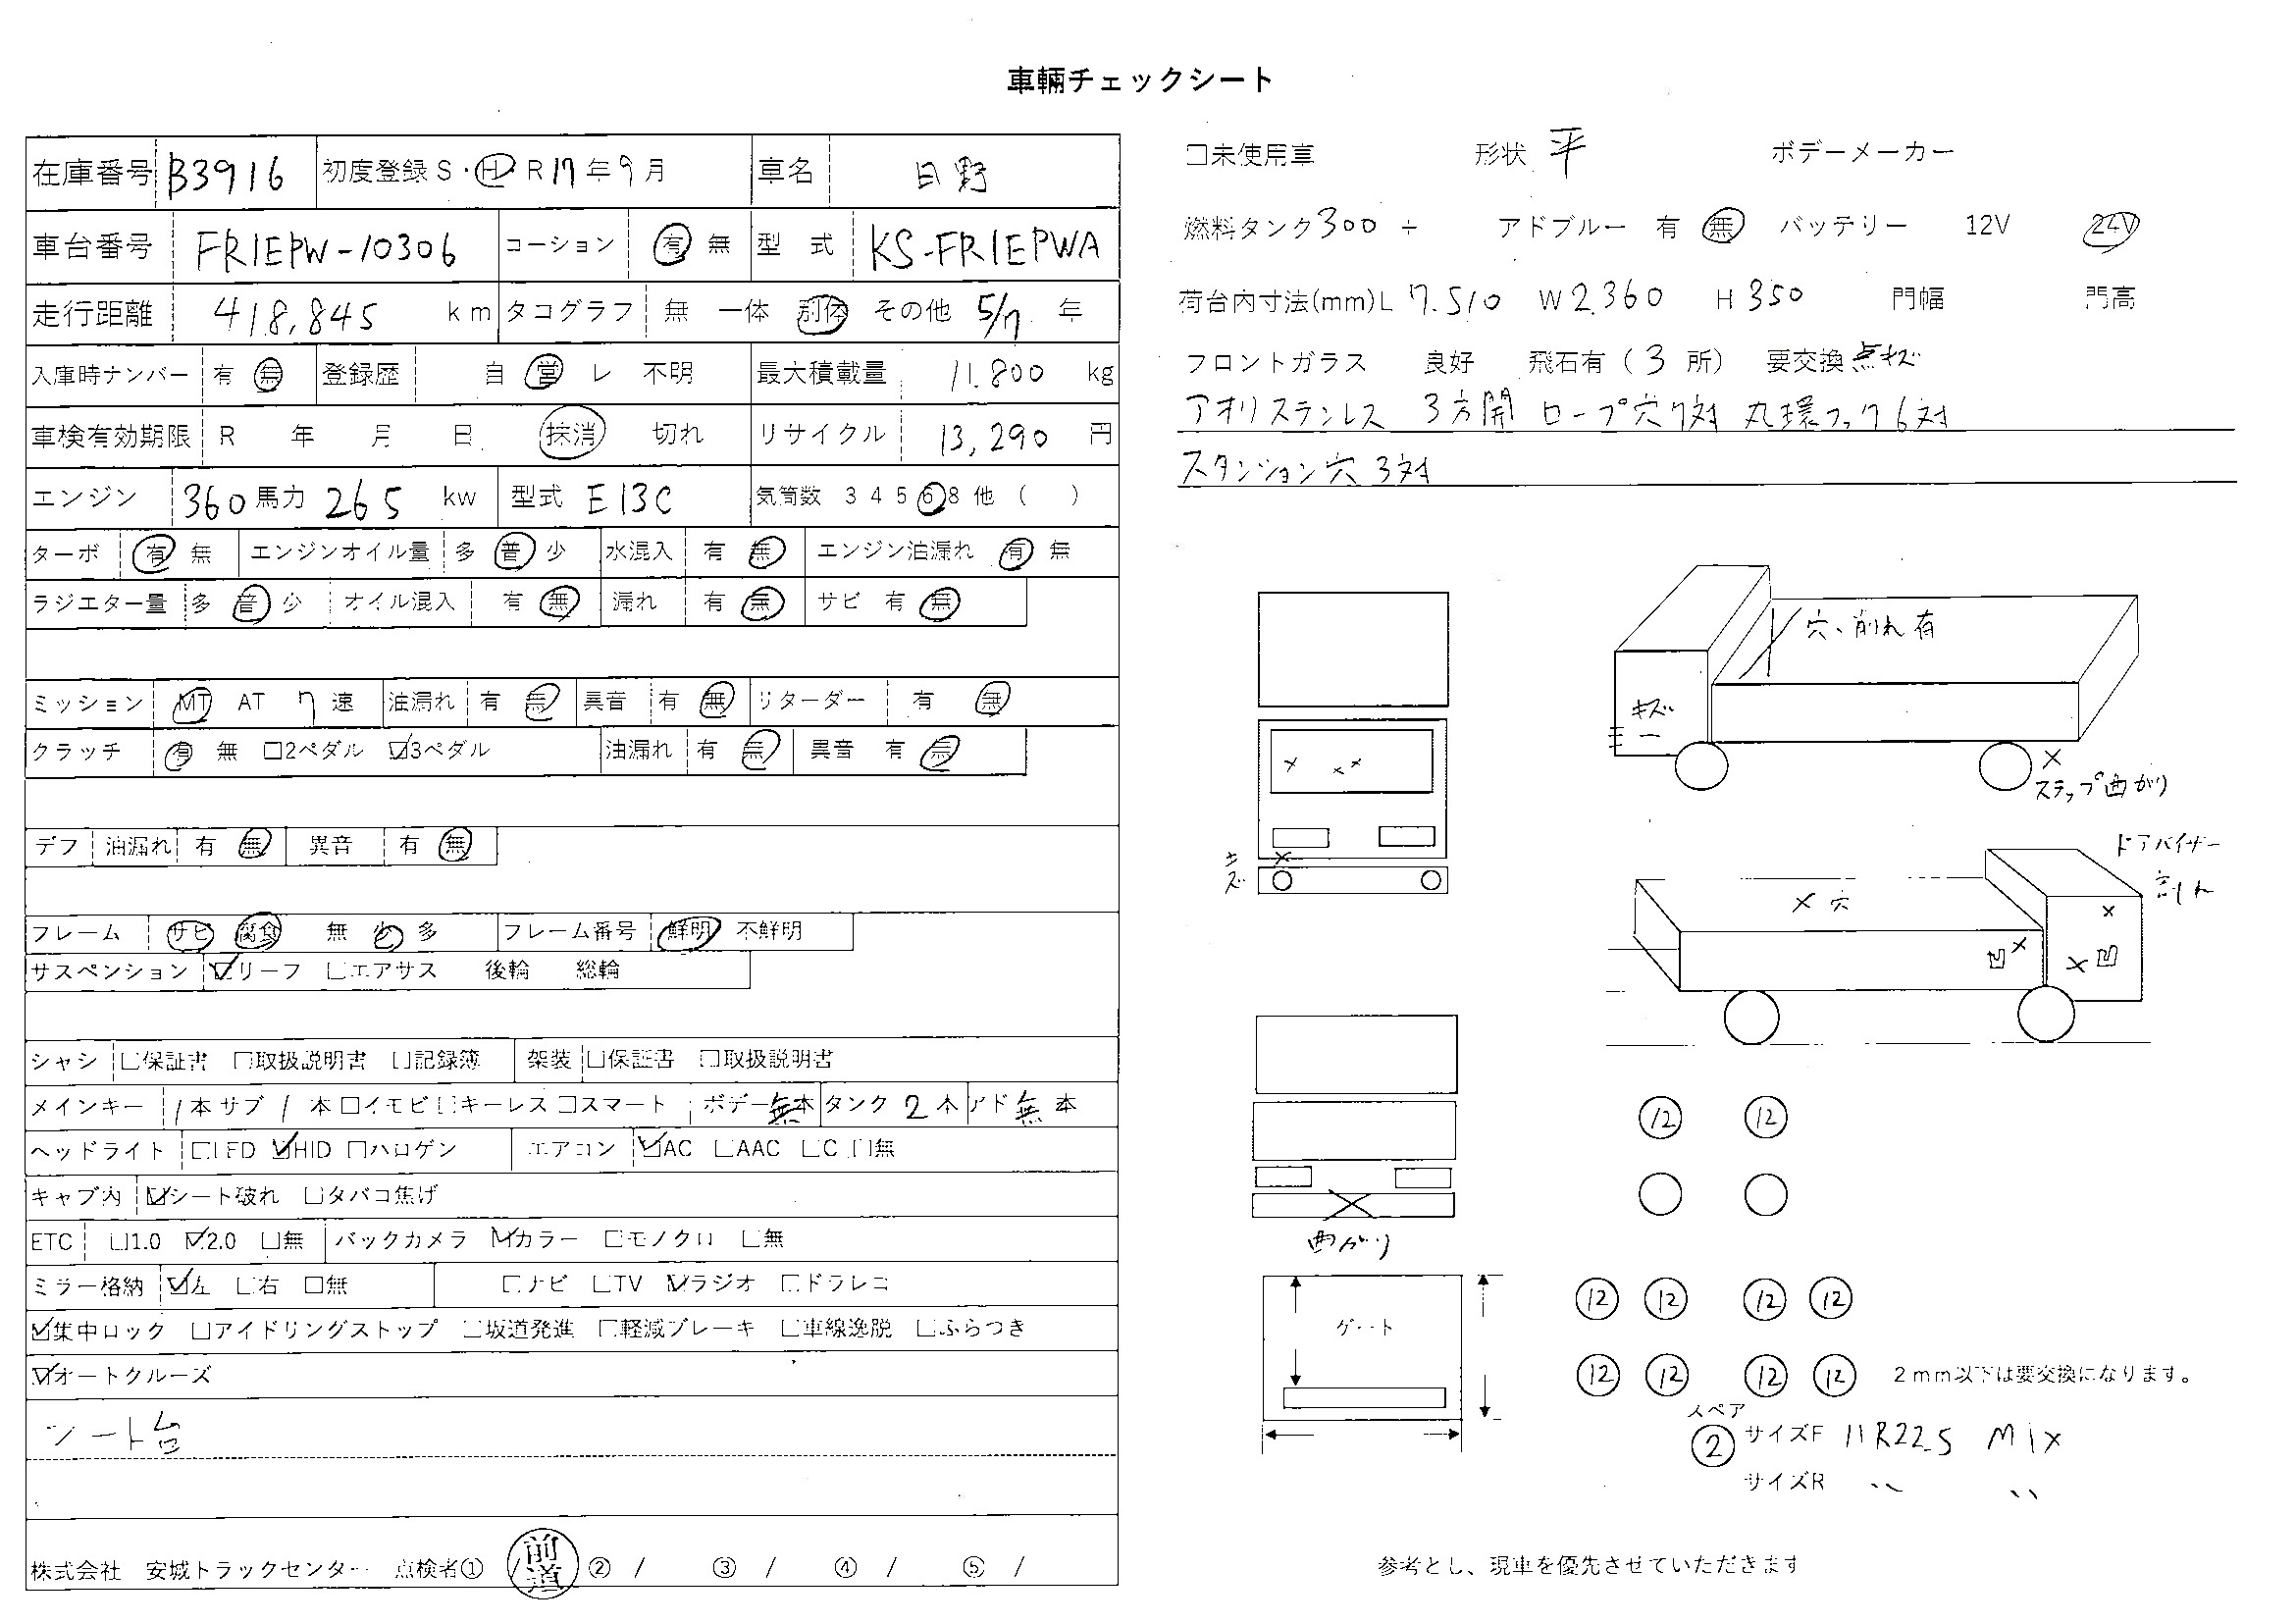 車輛チェックシート
在庫番号 B3916 初度登録 S・H R 17年9月 車名 日野
車台番号 FR1EPW-10306 コーション 有 無 型 式 KS-FR1EPWA
走行距離 418,845 km タコグラフ 無 一体 別体 その他 5/7 年
入庫時ナンバー 有 無 登録歴 自 営 レ 不明 最大積載量 11.800 kg
車検有効期限 R 年 月 日 抹消 切れ リサイクル 13,290 円
エンジン 360馬力 265 kw 型式 E13C 気筒数 3 4 5 6 8 他 ( )
ターボ 有 無 エンジンオイル量 多 普 少 水混入 有 無 エンジン油漏れ 有 無
ラジエター量 多 普 少 オイル混入 有 無 漏れ 有 無 サビ 有 無
ミッション MT AT 7 速 油漏れ 有 無 異音 有 無 リターダー 有 無
クラッチ 有 無 □2ペダル ☑3ペダル 油漏れ 有 無 異音 有 無
デフ 油漏れ 有 無 異音 有 無
フレーム サビ 腐食 無 少 多 フレーム番号 鮮明 不鮮明
サスペンション ☑リーフ □エアサス 後輪 総輪
シャシ □保証書 □取扱説明書 □記録簿 架装 □保証書 □取扱説明書
メインキー 1本 サブ 1 本 □イモビ □キーレス □スマート ボデー無本 タンク 2 本 アド無 本
ヘッドライト □LED ☑HID □ハロゲン エアコン ☑AC □AAC □C □無
キャブ内 ☑シート破れ □タバコ焦げ
ETC □1.0 ☑2.0 □無 バックカメラ ☑カラー □モノクロ □無
ミラー格納 ☑左 □右 □無 □ナビ □TV ☑ラジオ □ドラレコ
☑集中ロック □アイドリングストップ □坂道発進 □軽減ブレーキ □車線逸脱 □ふらつき
☑オートクルーズ
シート台
株式会社 安城トラックセンター 点検者① / 前道 ② / ③ / ④ / ⑤ /
□未使用車 形状 平 ボデーメーカー
燃料タンク300 ÷ アドブルー 有 無 バッテリー 12V 24V
荷台内寸法(mm)L 7.510 W 2.360 H 350 門幅 門高
フロントガラス 良好 飛石有 ( 3 所) 要交換 点キズ
アオリステンレス 3方開 ロープ穴7対 丸環フック6対
スタンション穴 3対
穴、削れ有
キズ
ステップ曲がり
キズ
ドアバイザー
割れ
穴
凹
凹
曲がり
ゲート
12 12
12 12 12 12
12 12 12 12 2mm以下は要交換になります。
スペア
② サイズF 11R22.5 Mix
サイズR 〃 〃
参考とし、現車を優先させていただきます